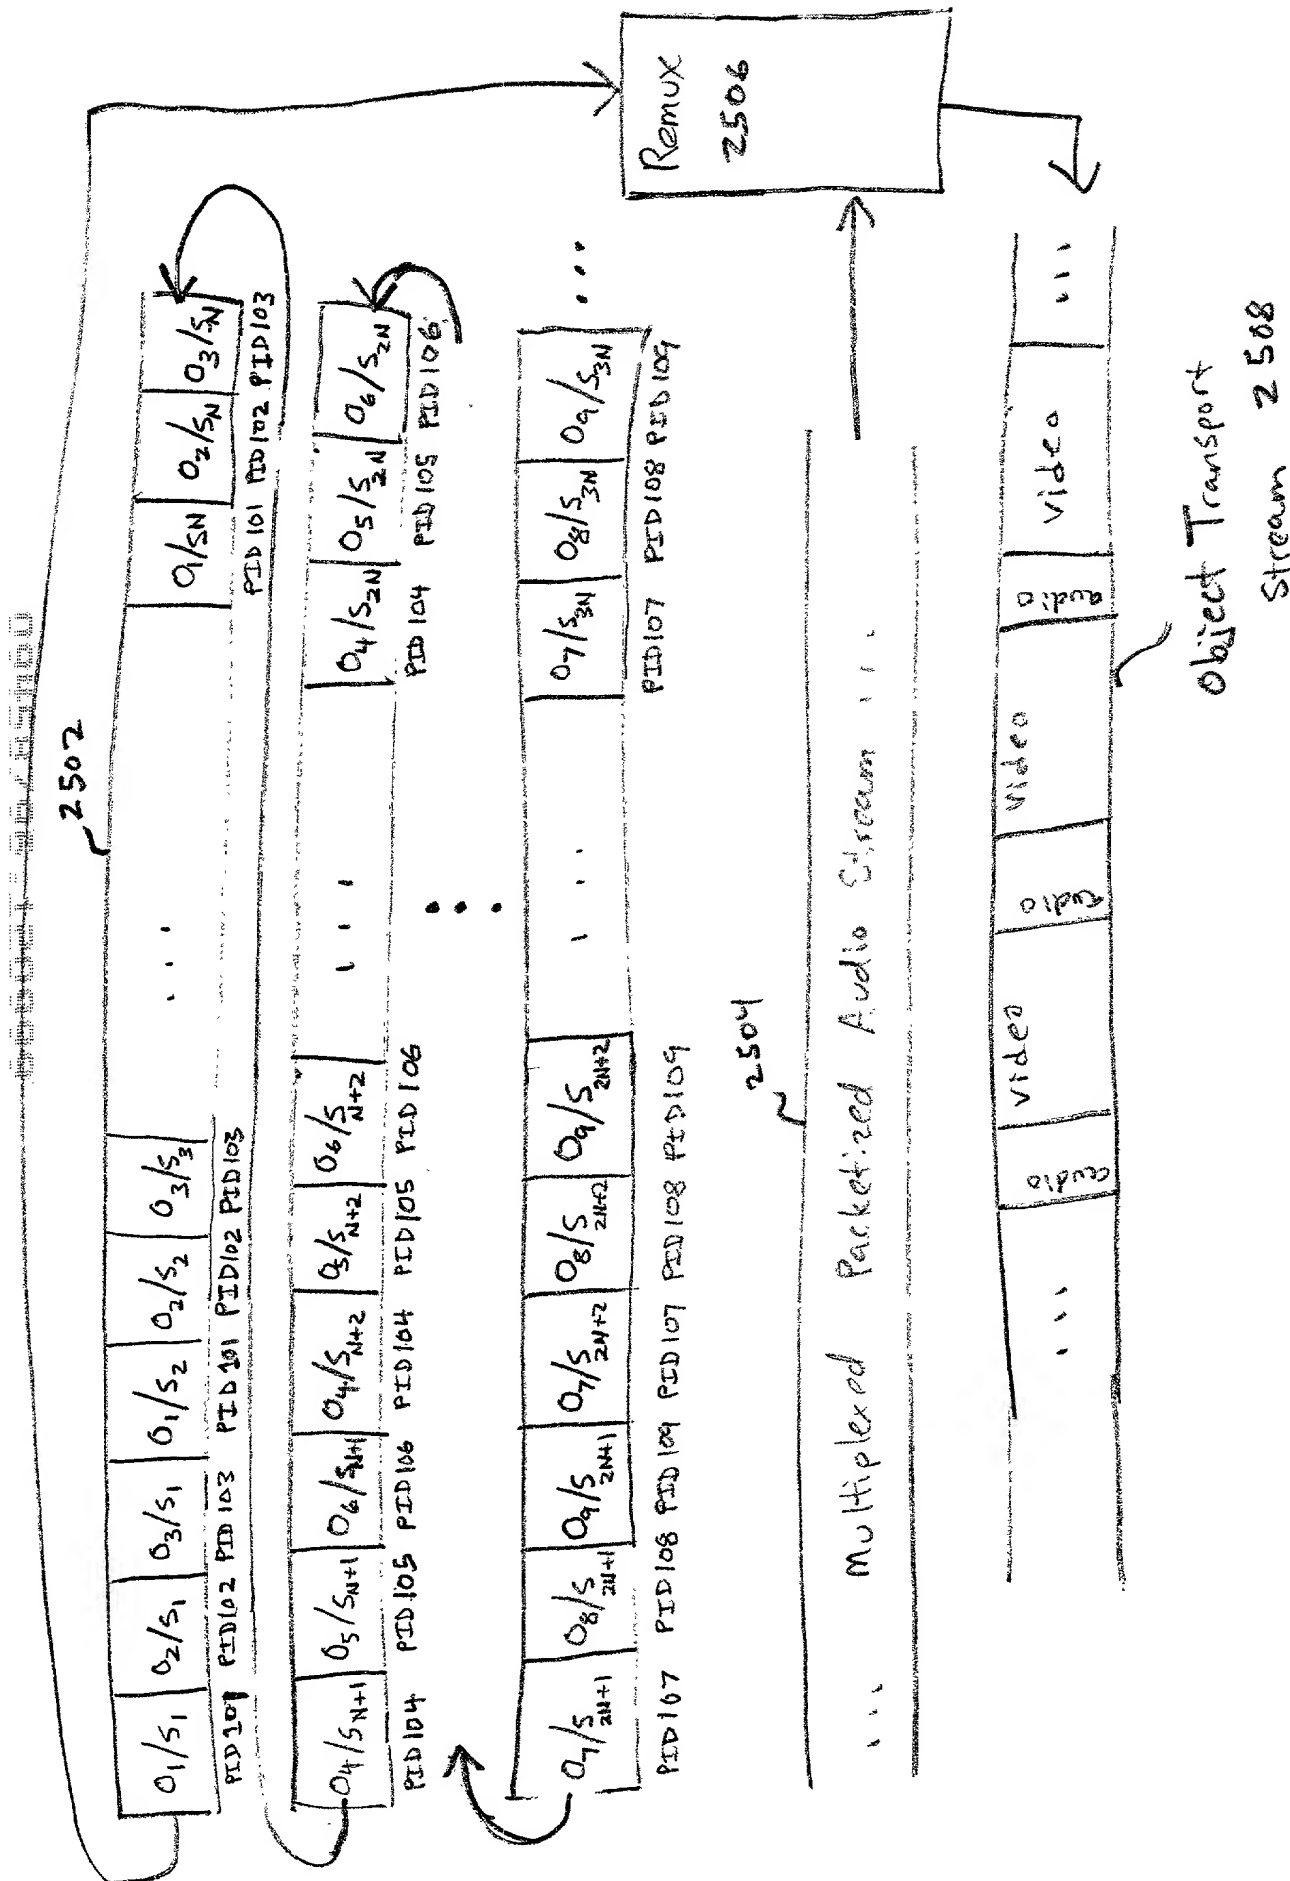 2502
O1/S1 O2/S1 O3/S1 O1/S2 O2/S2 O3/S3 ... O1/SN O2/SN O3/SN
PID 101 PID102 PID103 PID 101 PID102 PID103 PID 101 PID102 PID103
O4/SN+1 O5/SN+1 O6/SN+1 O4/SN+2 O5/SN+2 O6/SN+2 ... O4/S2N O5/S2N O6/S2N
PID104 PID105 PID106 PID104 PID105 PID106 PID104 PID105 PID106
O7/S2N+1 O8/S2N+1 O9/S2N+1 O7/S2N+2 O8/S2N+2 O9/S2N+2 ... O7/S3N O8/S3N O9/S3N ...
PID107 PID108 PID109 PID107 PID108 PID109 PID107 PID108 PID109
Remux
2506
2504
... Multiplexed Packetized Audio Stream ...
... audio Video audio Video audio Video ...
Object Transport
Stream 2508